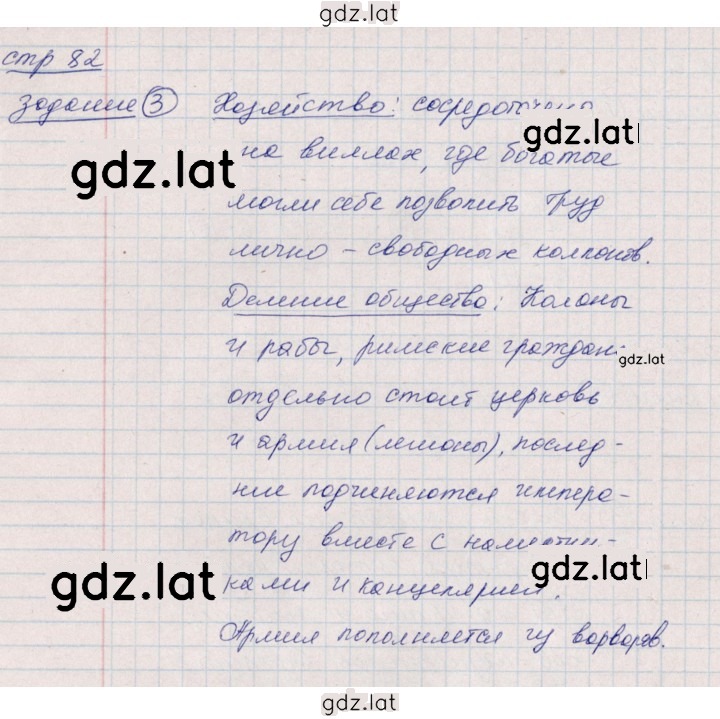 gdz.lat
стр 82
Задание 3 Хозяйство: сосредоточено
gdz.lat
на виллах, где богатые
gdz.lat
могли себе позволить труд
лично - свободных колонов.
Деление общество: Колоны
и рабы, римские граждане
gdz.lat
отдельно стоит церковь
и армия (легионы), послед-
ние подчиняются импера-
тору вместе с наместни-
gdz.lat
ками и канцелярией.
gdz.lat
Армия пополняется из варваров.
gdz.lat